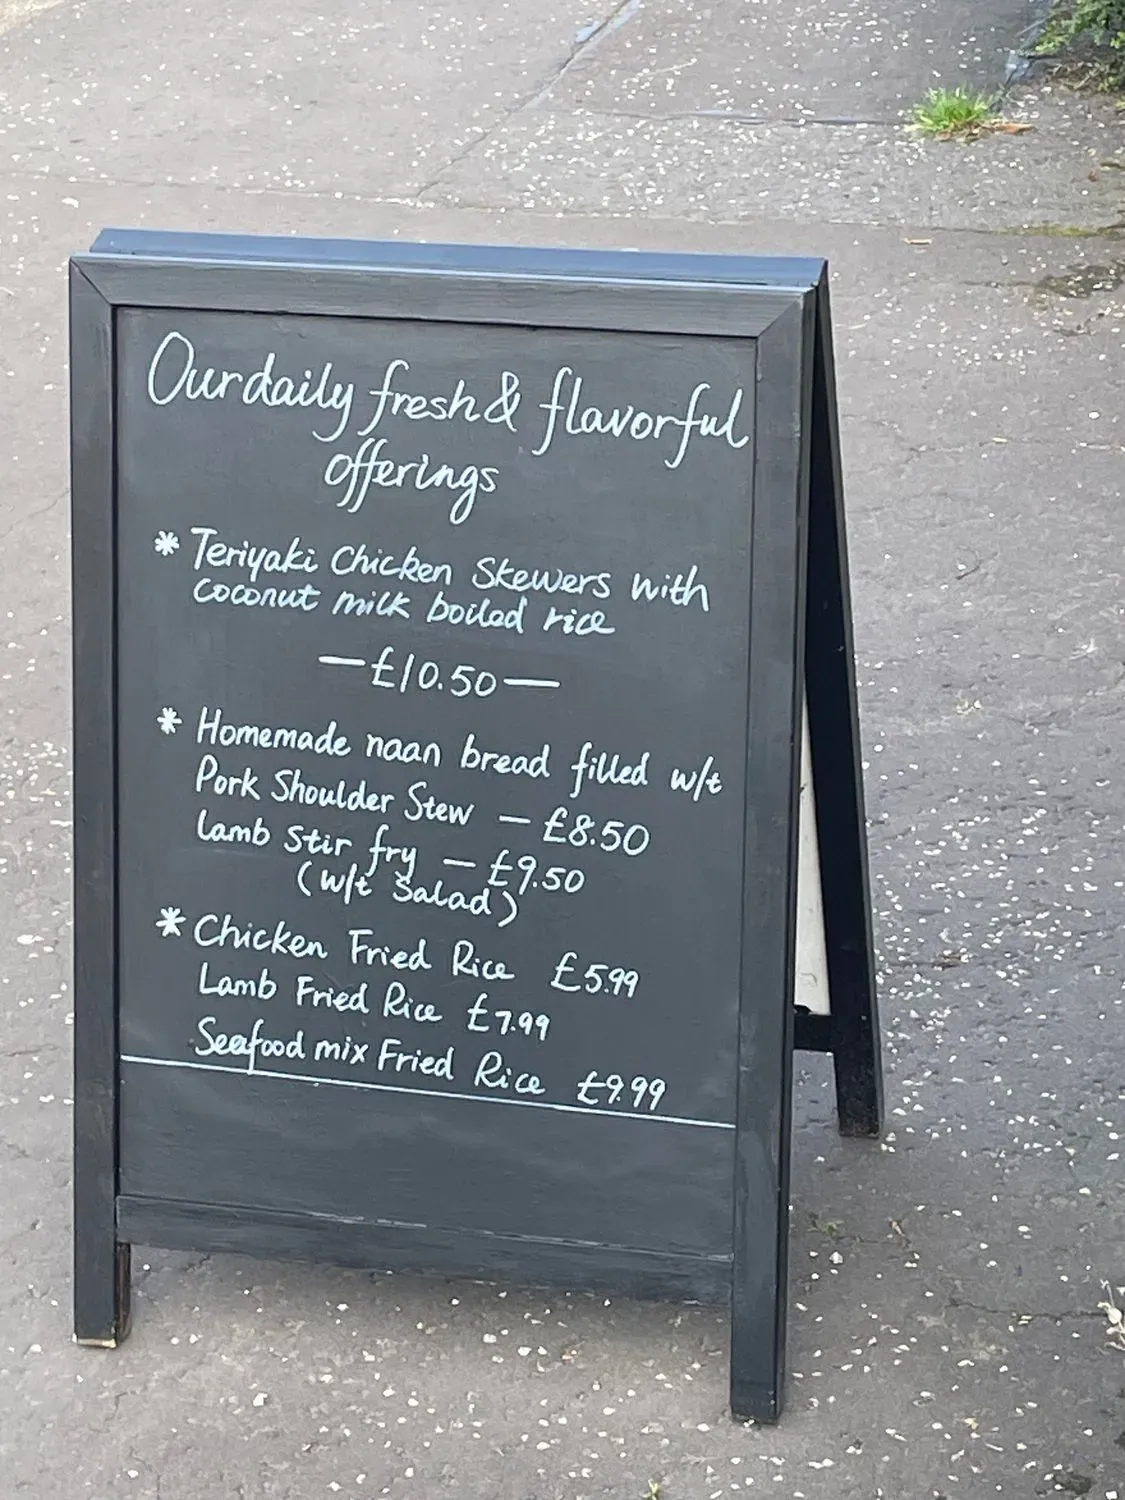 Our daily fresh & flavorful
offerings
* Teriyaki Chicken Skewers with
coconut milk boiled rice
— £10.50 —
* Homemade naan bread filled w/t
Pork Shoulder Stew — £8.50
Lamb Stir fry — £9.50
(w/t Salad)
* Chicken Fried Rice £5.99
Lamb Fried Rice £7.99
Seafood mix Fried Rice £9.99